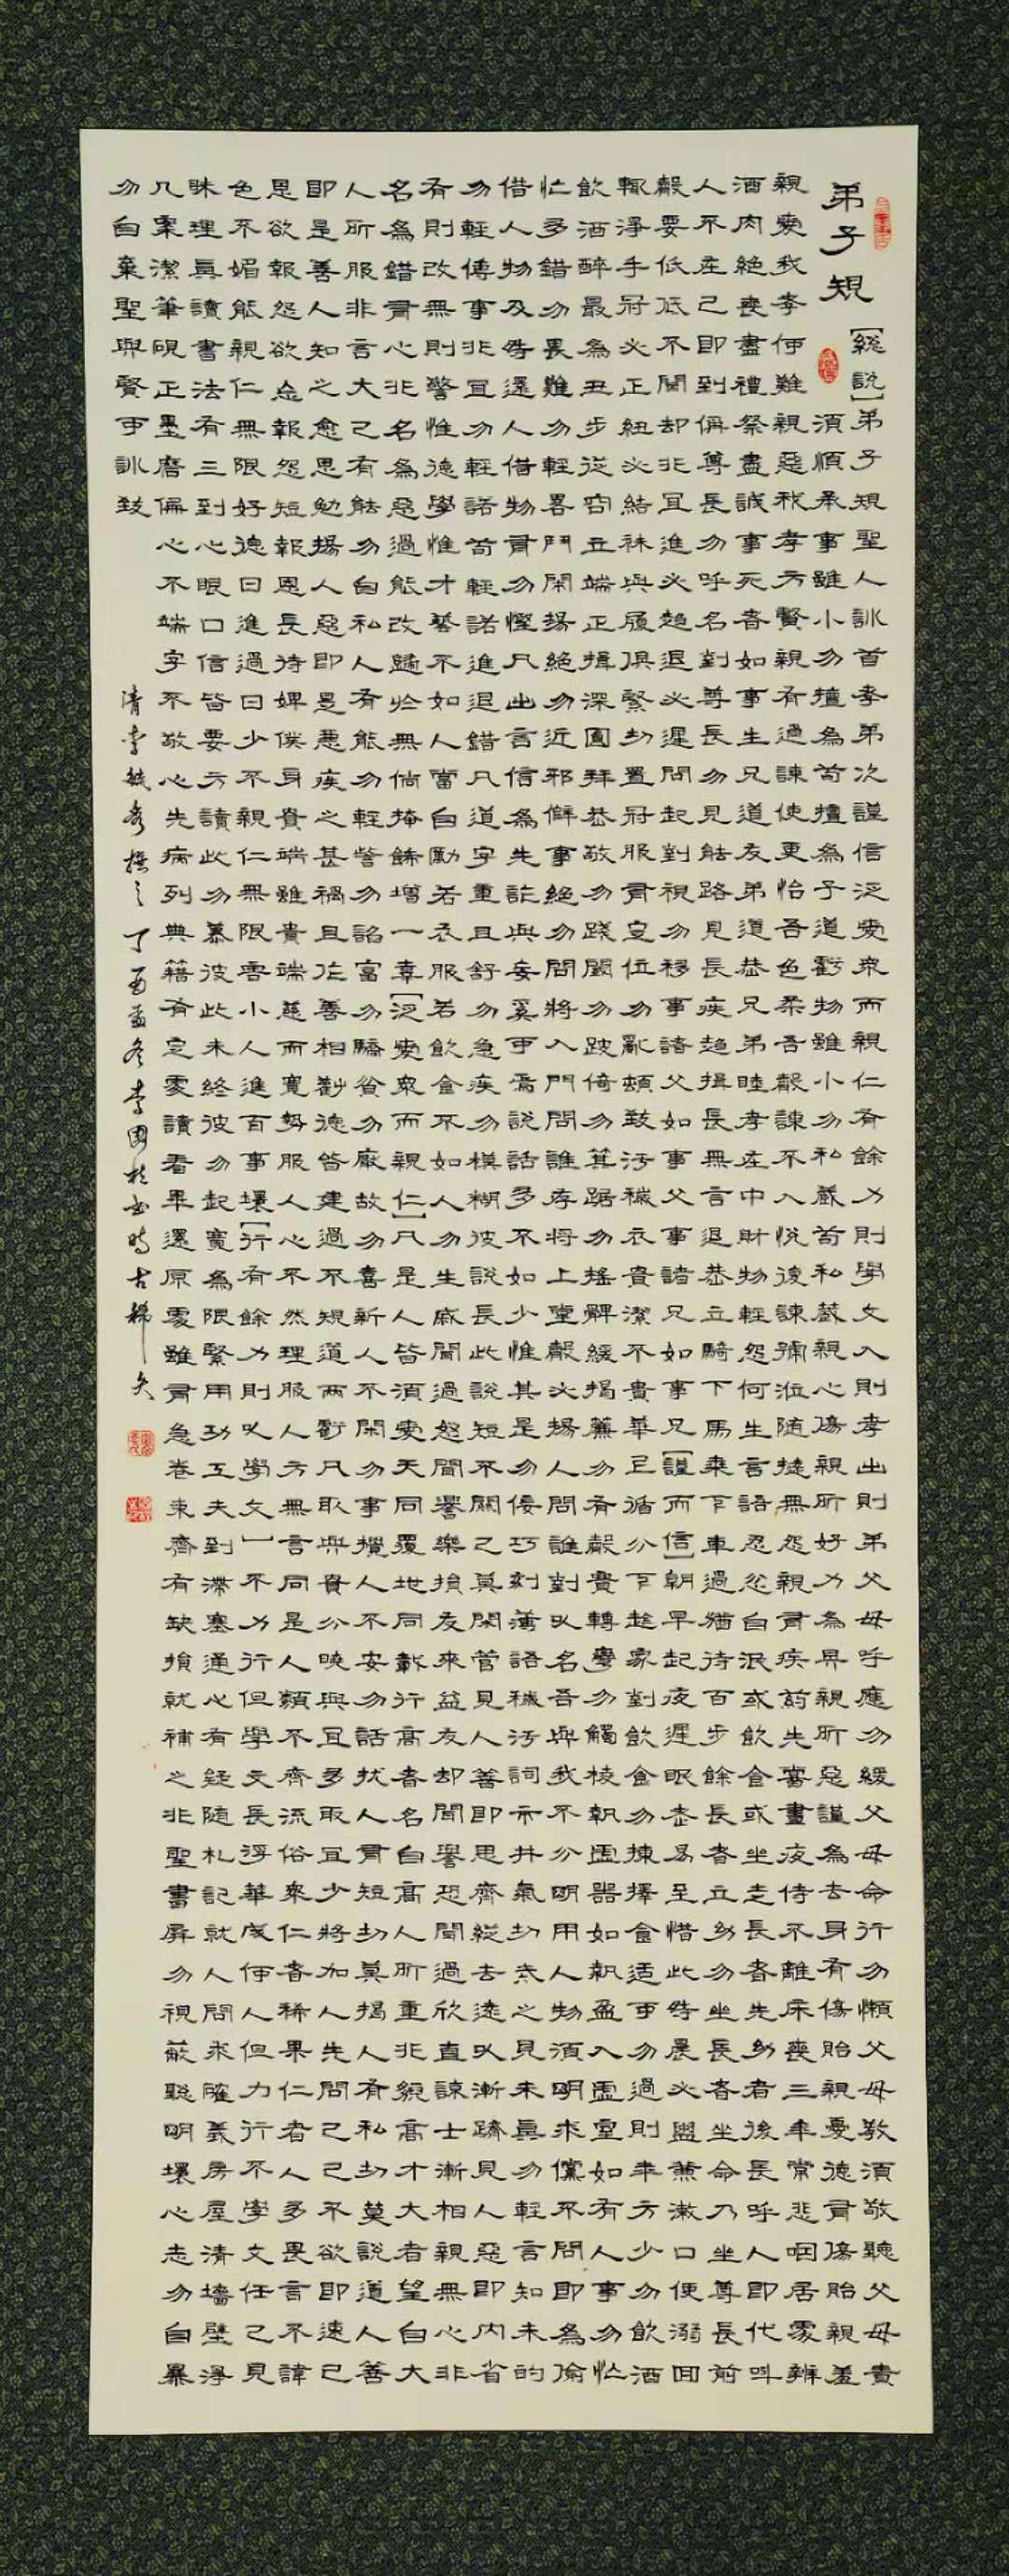 弟子規
【総說】弟子規聖人訓首孝弟次謹信泛愛眾而親仁有餘力則學文入則孝出則弟父母呼應勿緩父母命行勿懶父母教須敬聽父母責
須順承事雖小勿擅為苟擅為子道虧物雖小勿私藏苟私藏親心傷親所好力為具親所惡謹為去身有傷貽親憂德有傷貽親羞
親愛我孝何難親惡我孝方賢親有過諫使更怡吾色柔吾聲諫不入悅復諫號泣隨撻無怨親有疾藥先嘗晝夜侍不離床喪三年常悲咽居處辨
酒肉絕喪盡禮祭盡誠事死者如事生兄道友弟道恭兄弟睦孝在中財物輕怨何生言語忍忿自泯或飲食或坐走長者先幼者後長呼人即代叫
人不在己即到稱尊長勿呼名對尊長勿見能路見長疾趨揖長無言退恭立騎下馬乘下車過猶待百步餘長者立幼勿坐長者坐命乃坐尊長前
聲要低低不聞却非宜進必趨退必遲問起對視勿移事諸父如事父事諸兄如事兄【謹而信】朝早起夜遲眠老易至惜此時晨必盥兼漱口便溺回
輒淨手冠必正紐必結袜與履俱緊切置冠服有定位勿亂頓致污穢衣貴潔不貴華上循分下趁家對飲食勿揀擇食适可勿過則年方少勿飲酒
飲酒醉最為丑步從容立端正揖深圓拜恭敬勿踐閾勿跛倚勿箕踞勿搖髀緩揭簾勿有聲寬轉彎勿觸棱執虛器如執盈入虛室如有人事勿忙
忙多錯勿畏難勿輕畧鬥鬧場絕勿近邪僻事絕勿問將入門問誰存將上堂聲必揚人問誰對以名吾與我不分明用人物須明求儻不問即為偷
借人物及時還人借物有勿慳凡出言信為先詐與妄奚可焉說話多不如少惟其是勿佞巧刻薄語穢污詞市井氣切戒之見未真勿輕言知未的
勿輕傳事非宜勿輕諾苟輕諾進退錯凡道字重且舒勿急疾勿模糊彼說長此說短不關己莫閑管見人善即思齊縱去遠以漸躋見人惡即內省
有則改無則警惟德學惟才藝不如人當自勵若衣服若飲食不如人勿生慼聞過怒聞譽樂損友來益友却聞譽恐聞過欣直諒士漸相親無心非
名為錯有心非名為惡過能改歸於無倘掩飾增一辜【泛愛眾而親仁】凡是人皆須愛天同覆地同載行高者名自高人所重非貌高才大者望自大
人所服非言大己有能勿自私人有能勿輕訾勿諂富勿驕貧勿厭故勿喜新人不閑勿事攪人不安勿話擾人有短切莫揭人有私切莫說道人善
即是善人知之愈思勉揚人惡即是惡疾之甚禍且作善相勸德皆建過不規道兩虧凡取與貴分曉與宜多取宜少將加人先問己己不欲即速已
恩欲報怨欲忘報怨短報恩長待婢僕身貴端雖貴端慈而寬勢服人心不然理服人方無言同是人類不齊流俗眾仁者稀果仁者人多畏言不諱
色不媚能親仁無限好德日進過日少不親仁無限害小人進百事壞【行有餘力則以學文】不力行但學文長浮華成何人但力行不學文任己見
昧理真讀書法有三到心眼口信皆要方讀此勿慕彼此未終彼勿起寬為限緊用功工夫到滯塞通心有疑隨札記就人問求確義房屋清墻壁淨
几案潔筆硯正墨磨偏心不端字不敬心先病列典籍有定處讀看畢還原處雖有急卷束齊有缺損就補之非聖書屏勿視蔽聰明壞心志勿自暴
勿自棄聖與賢可訓致
清李毓秀撰之丁酉孟冬李國於書時古稀一矣